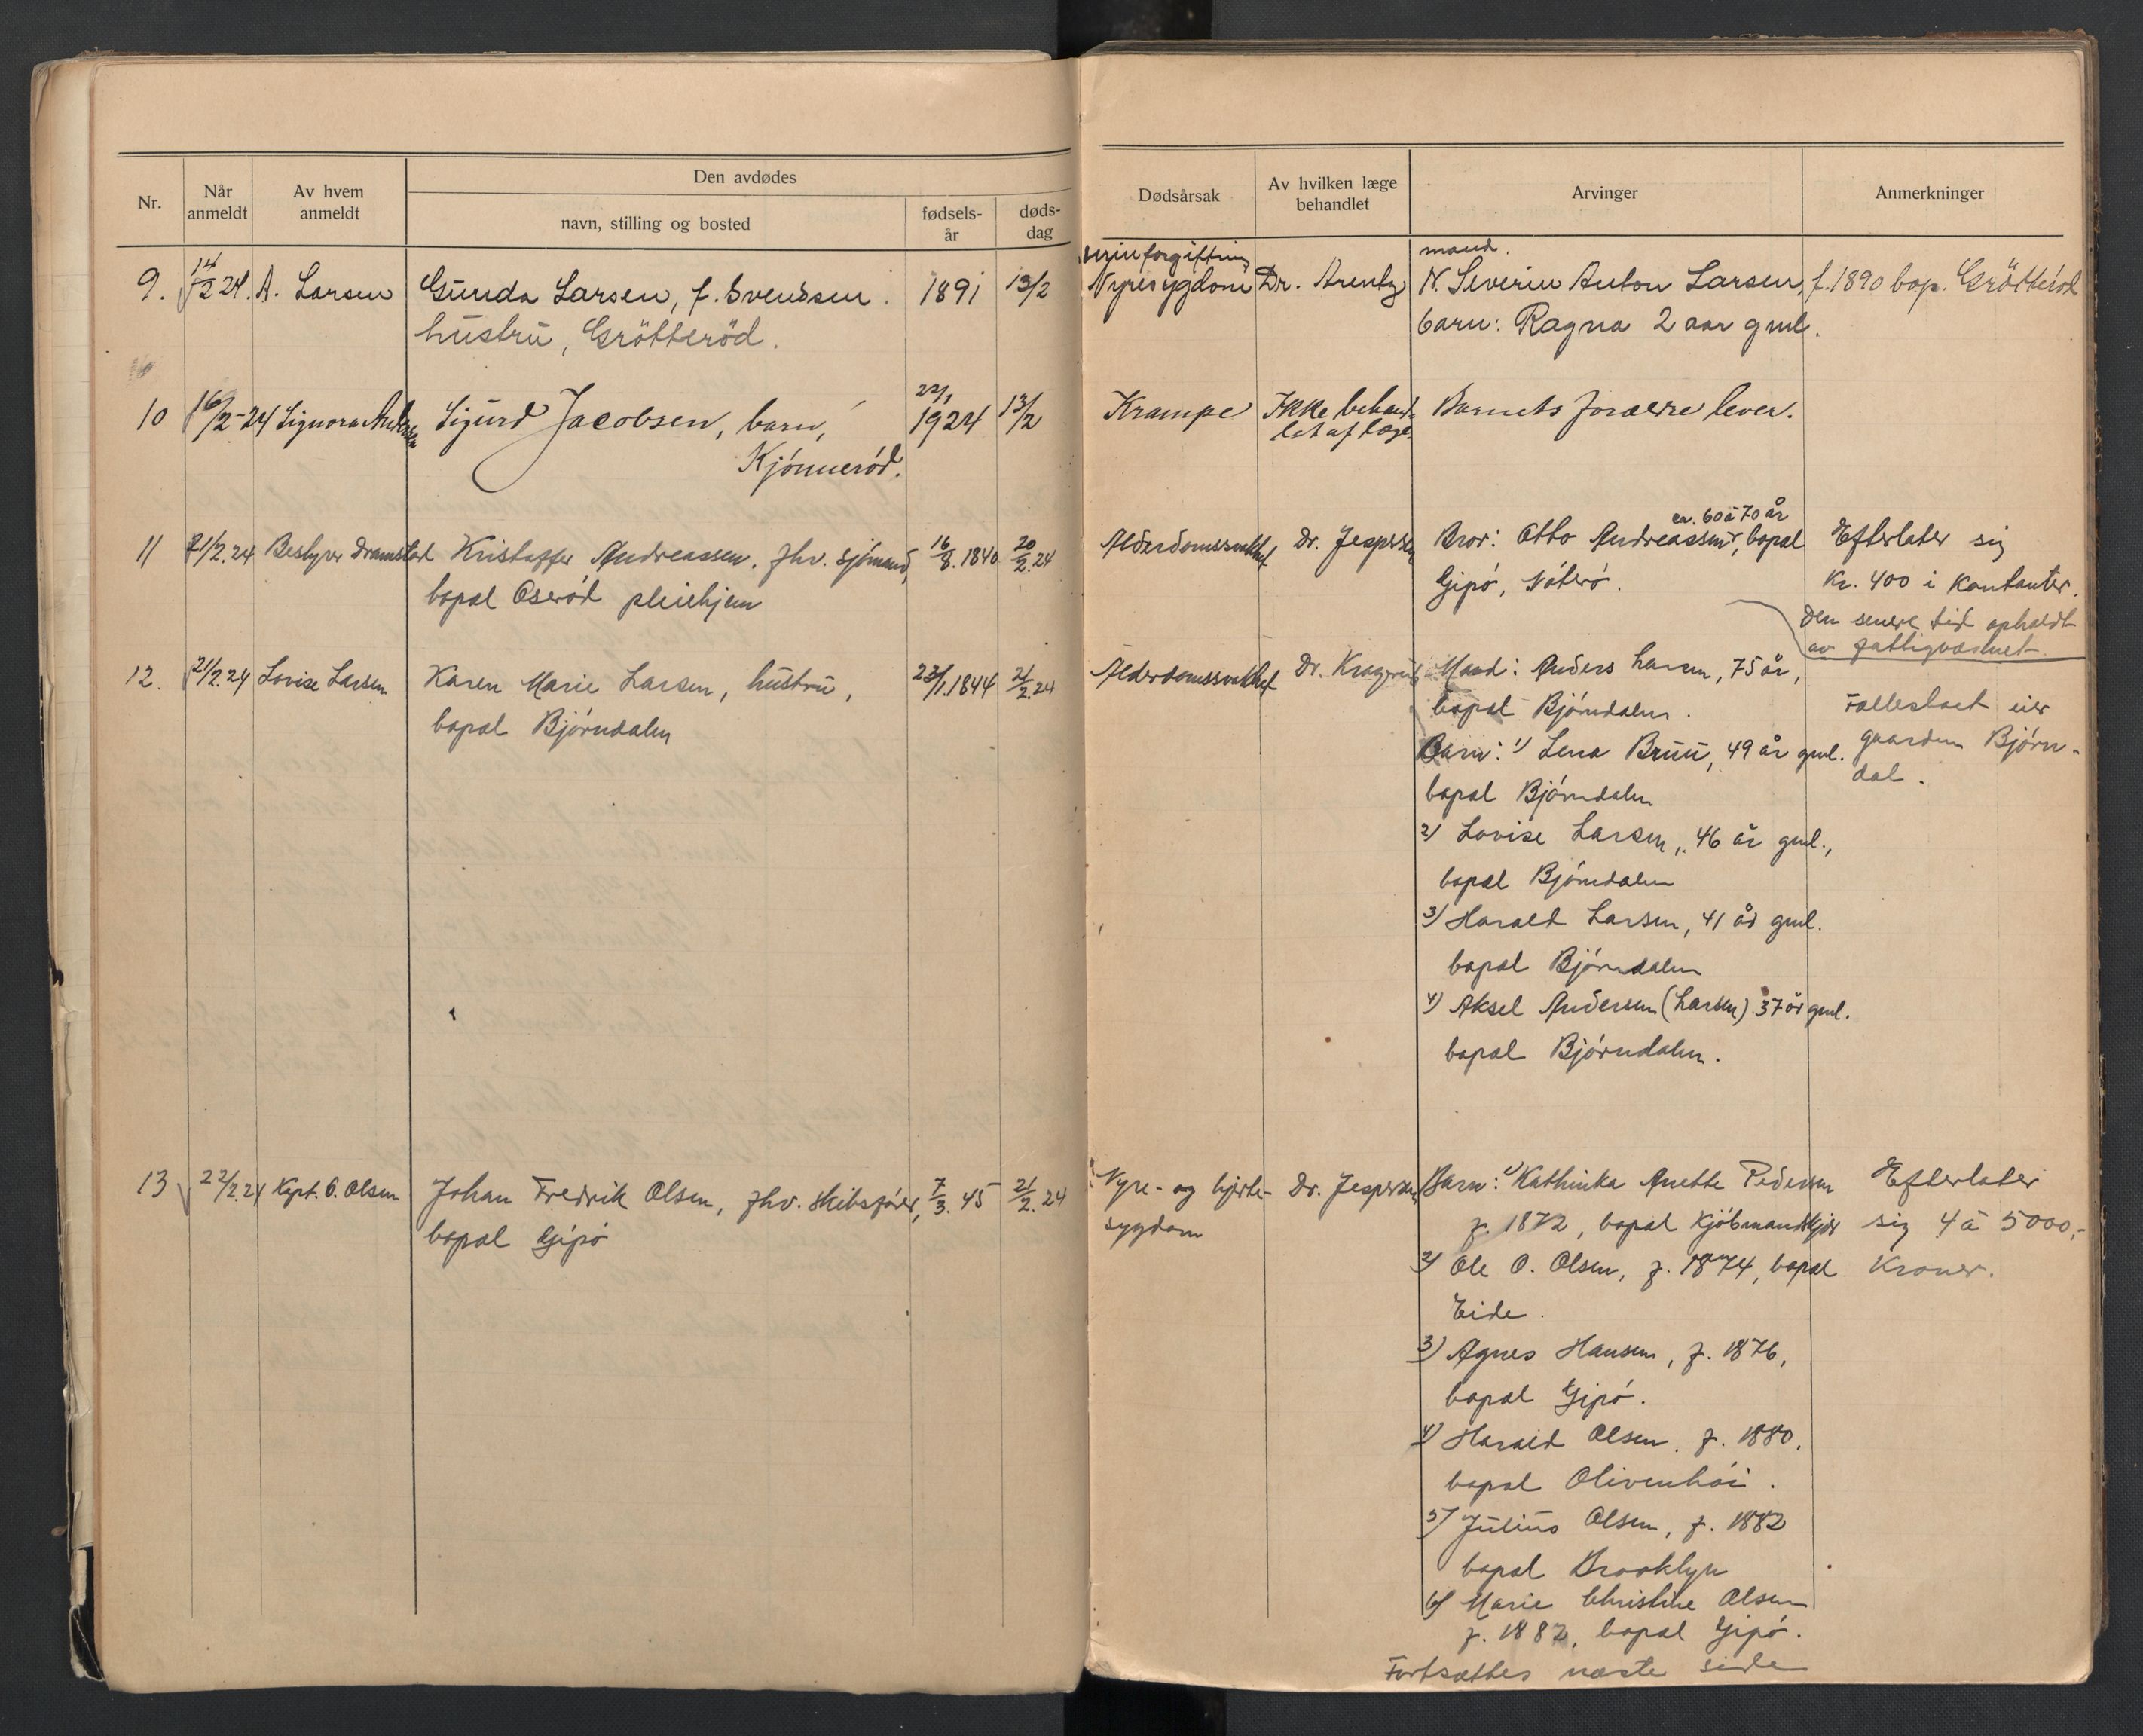 Nr.
Når anmeldt
Av hvem anmeldt
Den avdødes
navn, stilling og bosted
fødsels-år
døds-dag
Dødsårsak
Av hvilken læge behandlet
Arvinger
Anmerkninger
9. 14/2 24. A. Larsen Gunda Larsen, f. Svendsen. 1891 13/2
hustru, Grötteröd.
urinforgiftning
Nyresygdom Dr. Arentz
mand.
N. Severin Anton Larsen, f. 1890 bop. Grötteröd
barn: Ragna 2 aar gml.
10 16/2-24 Signora Sigurd Jacobsen, barn, 22/1 1924 13/2
Kjönneröd.
Krampe Ikke behand-
let af læge.
Barnets forældre lever.
11 21/2.24 Bestyrer Dramstad Kristoffer Andreassen. fhv. sjömand, 16/8.1840 20/2.24
bopæl Oseröd pleiehjem
Alderdomssvakhet Dr. Jespersen
Bror: Otto Andreassen, ca. 60 à 70 år bopæl
Gipö, Nöterö.
Efterlater sig
Kr. 400 i kontanter.
Den senere tid opholdt
av fattigvæsenet
12. 21/2.24 Lovise Larsen Karen Marie Larsen, hustru, 23/1.1844 21/2.24
bopæl Björndalen
Alderdomssvakhet Dr. Kragerud
Mand: Anders Larsen, 75 år,
bopæl Björndalen.
Barn: 1) Lena Bruu, 49 år gml.
bopæl Björndalen
2) Lovise Larsen, 46 år gml.,
bopæl Björndalen
3) Harald Larsen, 41 år gml.
bopæl Björndalen
4) Aksel Andersen (Larsen) 37 år gml.
bopæl Björndalen.
Fællesboet eier
gaarden Björn-
dal.
13 22/2.24 Kapt. O. Olsen Johan Fredrik Olsen, fhv. skibsförer, 7/3.45 21/2.24
bopæl Gipö
Nyre- og hjerte-
sygdom
Dr. Jespersen
Barn: 1) Kathinka Anette Pedersen
f. 1872, bopæl Kjöbmandskjær
2) Ole O. Olsen, f. 1874, bopæl
Eide.
3) Agnes Hansen, f. 1876,
bopæl Gipö.
4) Harald Olsen, f. 1880,
bopæl Olivenhöi.
5) Julius Olsen, f. 1882
bopæl Brooklyn
6) Marie Christine Olsen
f. 1882, bopæl Gipö.
Fortsættes næste side
Efterlater
sig 4 à 5000,-
Kroner.